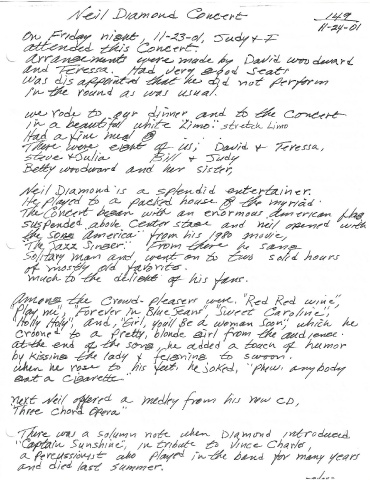 Neil Diamond Concert
149
11-24-01
On Friday night, 11-23-01, Judy & I
attended this Concert.
arrangements were made by David Woodward
and Teressa. Had very good seats
was disappointed that he did not perform
in the round as was usual.
we rode to our dinner and to the concert
in a beautiful white "Limo" stretch Limo
Had a fine meal @
There were eight of us; David & Teressa,
Steve & Julia Bill & Judy
Betty Woodward and her sister,
Neil Diamond is a splendid entertainer.
He played to a packed house @ the myriad.
The concert began with an enormous American flag
suspended above Center stage and neil opened with
the song America" from his 1980 movie,
"The Jazz Singer" From there he sang
Solitary man and went on to two solid hours
of mostly old favorite.
much to the delight of his fans.
Among the Crowd-pleasers were "Red Red wine",
Play me", "Forever in Blue Jeans", "Sweet Caroline",
"Holly Holy", and, "Girl, you'll Be a woman Soon", which he
crooned to a pretty, blonde girl from the audience.
at the end of the song, he added a touch of humor
by kissing the lady & feigning to swoon.
when he rose to his feet, he joked, "Phew, anybody
got a cigarette."
next Neil offered a medley from his new CD,
"Three Chord Opera"
There was a solumn note when Diamond introduced
"Captain Sunshine", in tribute to Vince Charles,
a percussionist who played in the band for many years
and died last summer.